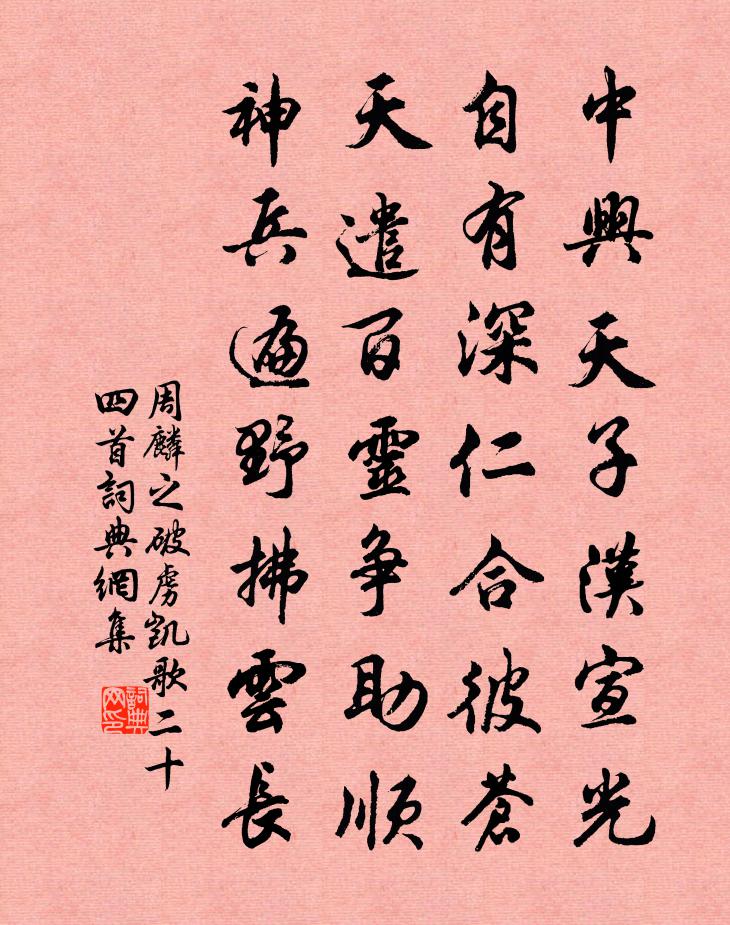 中興天子漢宣光
自有深仁合彼蒼
天遣百靈爭助順
神兵遍野拂雲長
周麟之破虜凱歌二十
四首詞典網集
詞典
网印